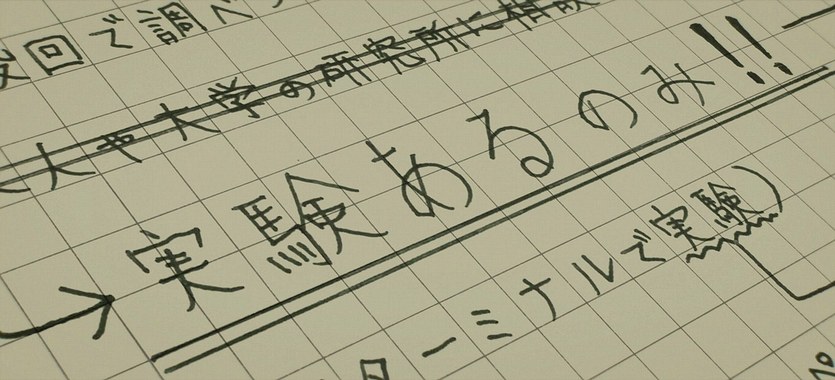 回で調べ
人や大学の研究所に相談
→実験あるのみ!!
ーミナルで実験)